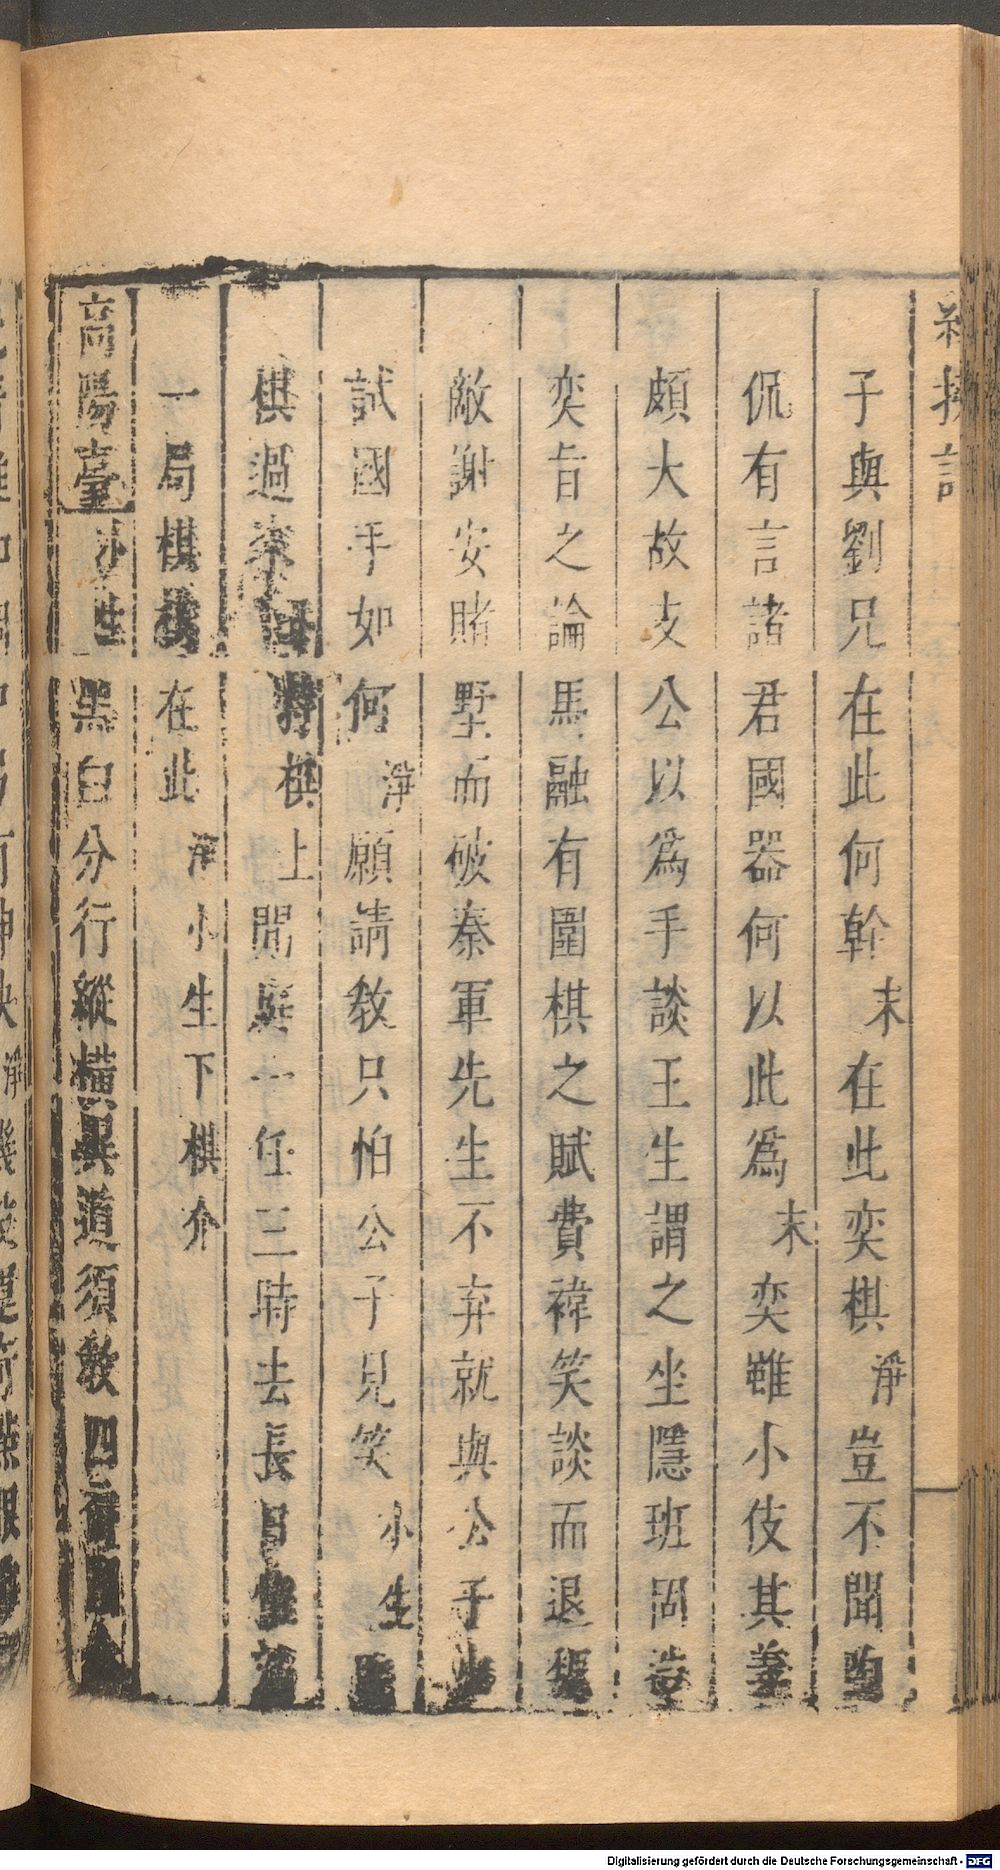 子與劉兄在此何幹 末 在此奕棋 淨 豈不聞陶
侃有言諸君國器何以此爲 末 奕雖小伎其義
頗大故支公以爲手談王生謂之坐隱班固造
奕旨之論馬融有圍棋之賦費禕笑談而退
敵謝安賭墅而破秦軍先生不弃就與公子
試國手如何 淨 願請教只怕公子見笑 小生
棋過來 將棋上 閒庭一任三時去長日
一局棋 在此 淨 小生下棋介
高陽臺 小生 黑白分行縱橫異道須教四
Digitalisierung gefördert durch die Deutsche Forschungsgemeinschaft - DFG